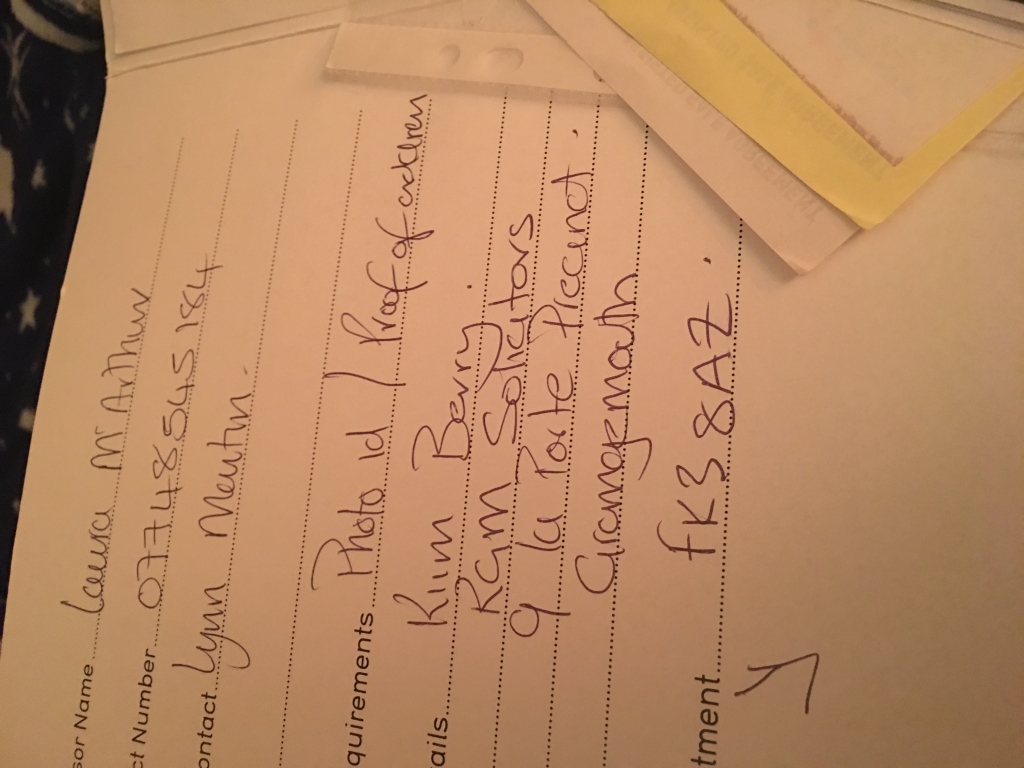 sor Name Laura McArthur
ct Number 07748545184
ontact Lynn Martin.
quirements Photo id / Proof of address
ails Kim Berry.
RGM Solicitors
9 La Porte Precinct.
Grangemouth
tment FK3 8AZ.
y
AGREEMENT